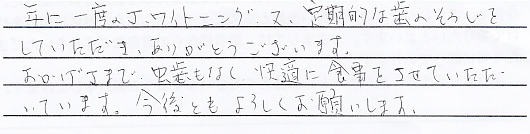 年に一度のホワイトニング、又、定期的な歯のそうじを
していただき、ありがとうございます。
おかげさまで、虫歯もなく快適に食事をさせていただ
いています。今後ともよろしくお願いします。